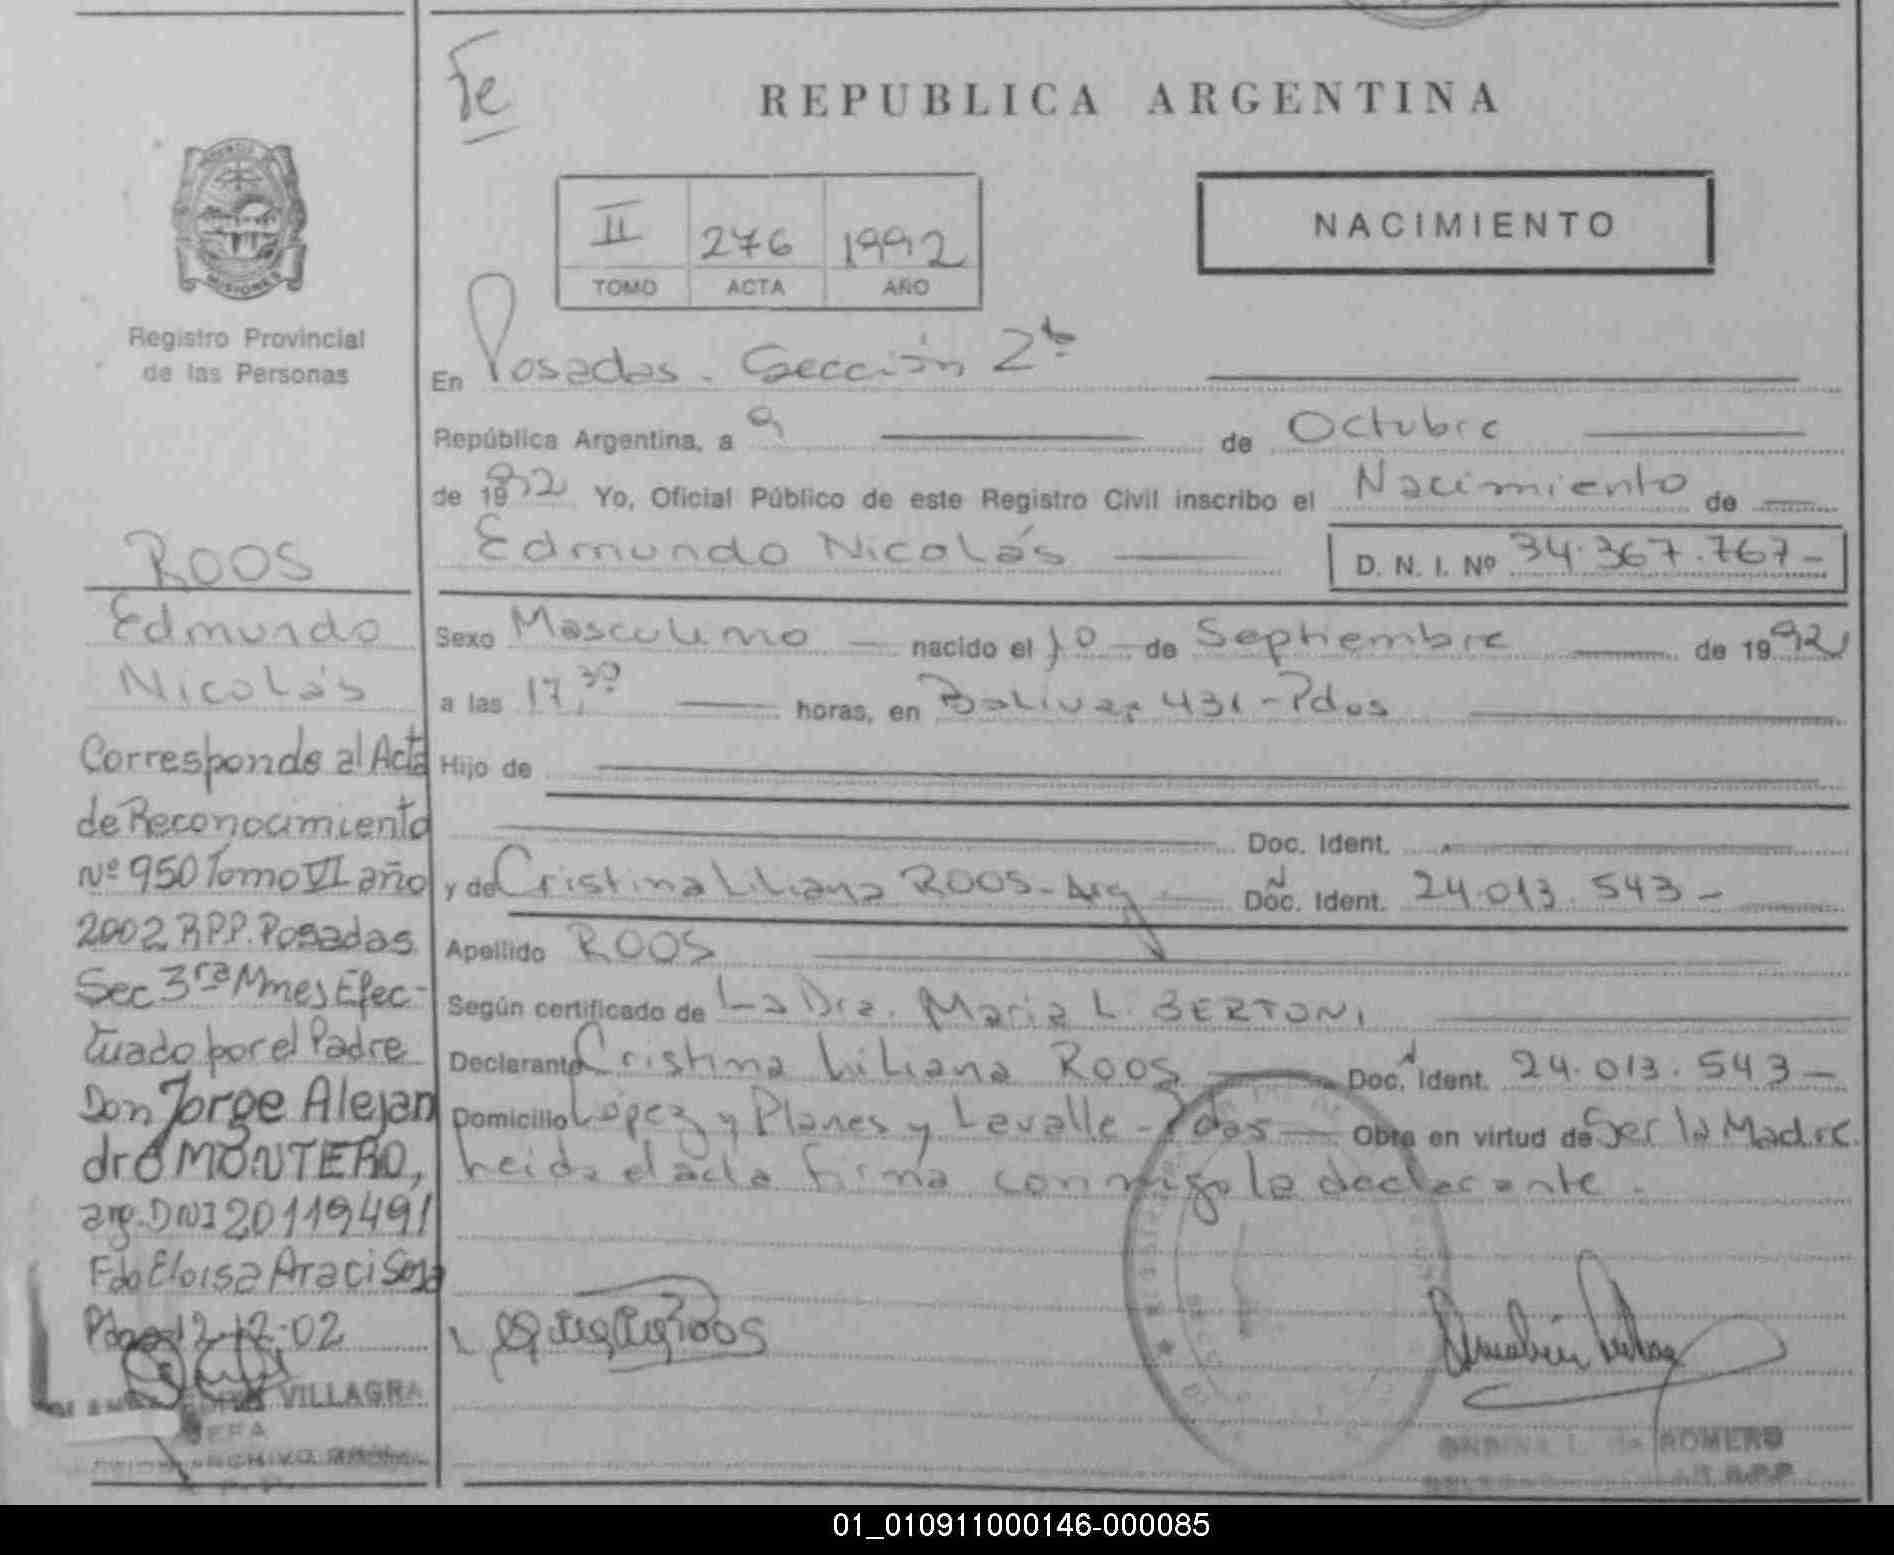 Te
REPUBLICA ARGENTINA
II 276 1992
TOMO ACTA AÑO
NACIMIENTO
MISIONES
Registro Provincial
de las Personas
En Posadas. Sección 2da
República Argentina, a 9 de Octubre
de 1992 Yo, Oficial Público de este Registro Civil inscribo el Nacimiento de
Edmundo Nicolás D. N. I. Nº 34.367.767-
Sexo Masculino nacido el 10 de Septiembre de 1992
a las 17,30 horas, en Bolivar 431-Pdas
Hijo de
Doc. Ident.
y de Cristina Liliana ROOS-Arg Doc. Ident. 24.013.543-
Apellido ROOS
Según certificado de La Dra. Maria L. BERTONI
Declarante Cristina Liliana ROOS Doc. Ident. 24.013.543-
Domicilio López y Planes y Lavalle-Pdas Obra en virtud de Ser la Madre.
leida el acta firma conmigo la declarante.
Roos
ROMERO
ROOS
Edmundo
Nicolás
Corresponde al Acta
de Reconocimiento
Nº 950 Tomo VI año
2002 R.P.P. Posadas
Sec 3ra Mnes Efec-
tuado por el Padre
Don Jorge Alejan
dro MONTERO,
arg. DNI 20119491
Fdo Eloisa Araci Sosa
Pdas 12-12-02
VILLAGRA
JEFA
ARCHIVO
01_010911000146-000085